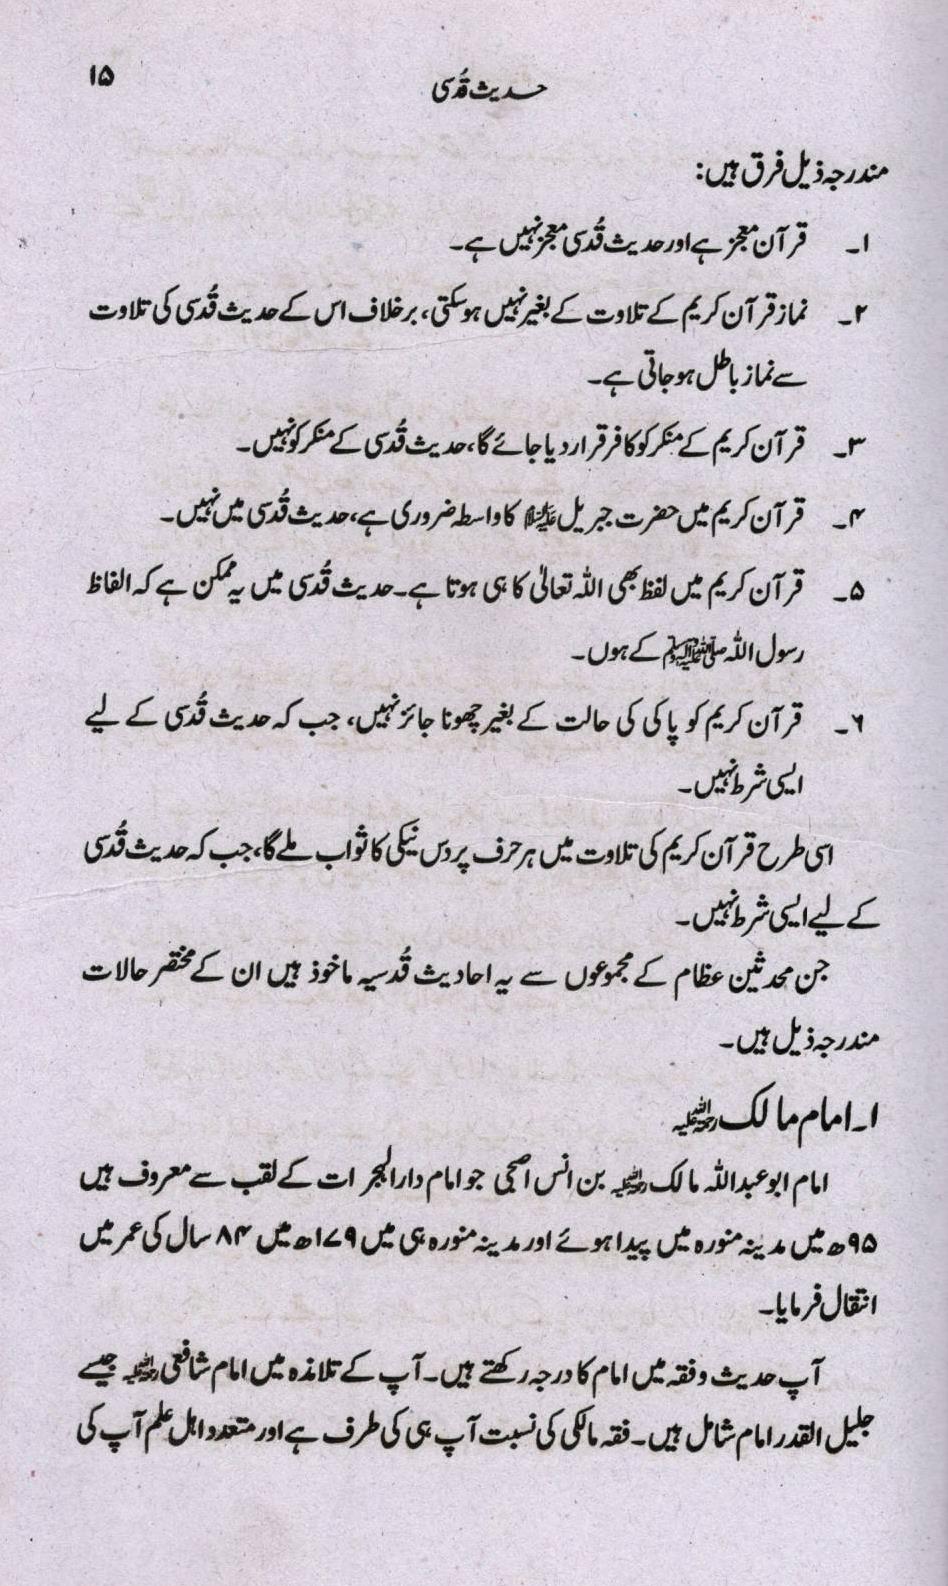 حدیث قُدسی ۱۵
مندرجہ ذیل فرق ہیں:
۱۔ قرآن معجز ہے اور حدیث قُدسی معجز نہیں ہے۔
۲۔ نماز قرآن کریم کے تلاوت کے بغیر نہیں ہو سکتی، برخلاف اس کے حدیث قُدسی کی تلاوت
سے نماز باطل ہو جاتی ہے۔
۳۔ قرآن کریم کے منکر کو کافر قرار دیا جائے گا، حدیث قُدسی کے منکر کو نہیں۔
۴۔ قرآن کریم میں حضرت جبریل علیہ السلام کا واسطہ ضروری ہے، حدیث قُدسی میں نہیں۔
۵۔ قرآن کریم میں لفظ بھی اللہ تعالیٰ کا ہی ہوتا ہے۔ حدیث قُدسی میں یہ ممکن ہے کہ الفاظ
رسول اللہ ﷺ کے ہوں۔
۶۔ قرآن کریم کو پاکی کی حالت کے بغیر چھونا جائز نہیں، جب کہ حدیث قُدسی کے لیے
ایسی شرط نہیں۔
اسی طرح قرآن کریم کی تلاوت میں ہر حرف پر دس نیکی کا ثواب ملے گا، جب کہ حدیث قُدسی
کے لیے ایسی شرط نہیں۔
جن محدثین عظام کے مجموعوں سے یہ احادیث قُدسیہ ماخوذ ہیں ان کے مختصر حالات
مندرجہ ذیل ہیں۔
۱۔ امام مالک رحمۃ اللہ علیہ
امام ابو عبداللہ مالک رحمۃ اللہ علیہ بن انس اصحی جو امام دارالہجر ات کے لقب سے معروف ہیں
۹۵ھ میں مدینہ منورہ میں پیدا ہوئے اور مدینہ منورہ ہی میں ۱۷۹ھ میں ۸۴ سال کی عمر میں
انتقال فرمایا۔
آپ حدیث و فقہ میں امام کا درجہ رکھتے ہیں۔ آپ کے تلامذہ میں امام شافعی رحمۃ اللہ علیہ جیسے
جلیل القدر امام شامل ہیں۔ فقہ مالکی کی نسبت آپ ہی کی طرف ہے اور متعدد اہل علم آپ کی